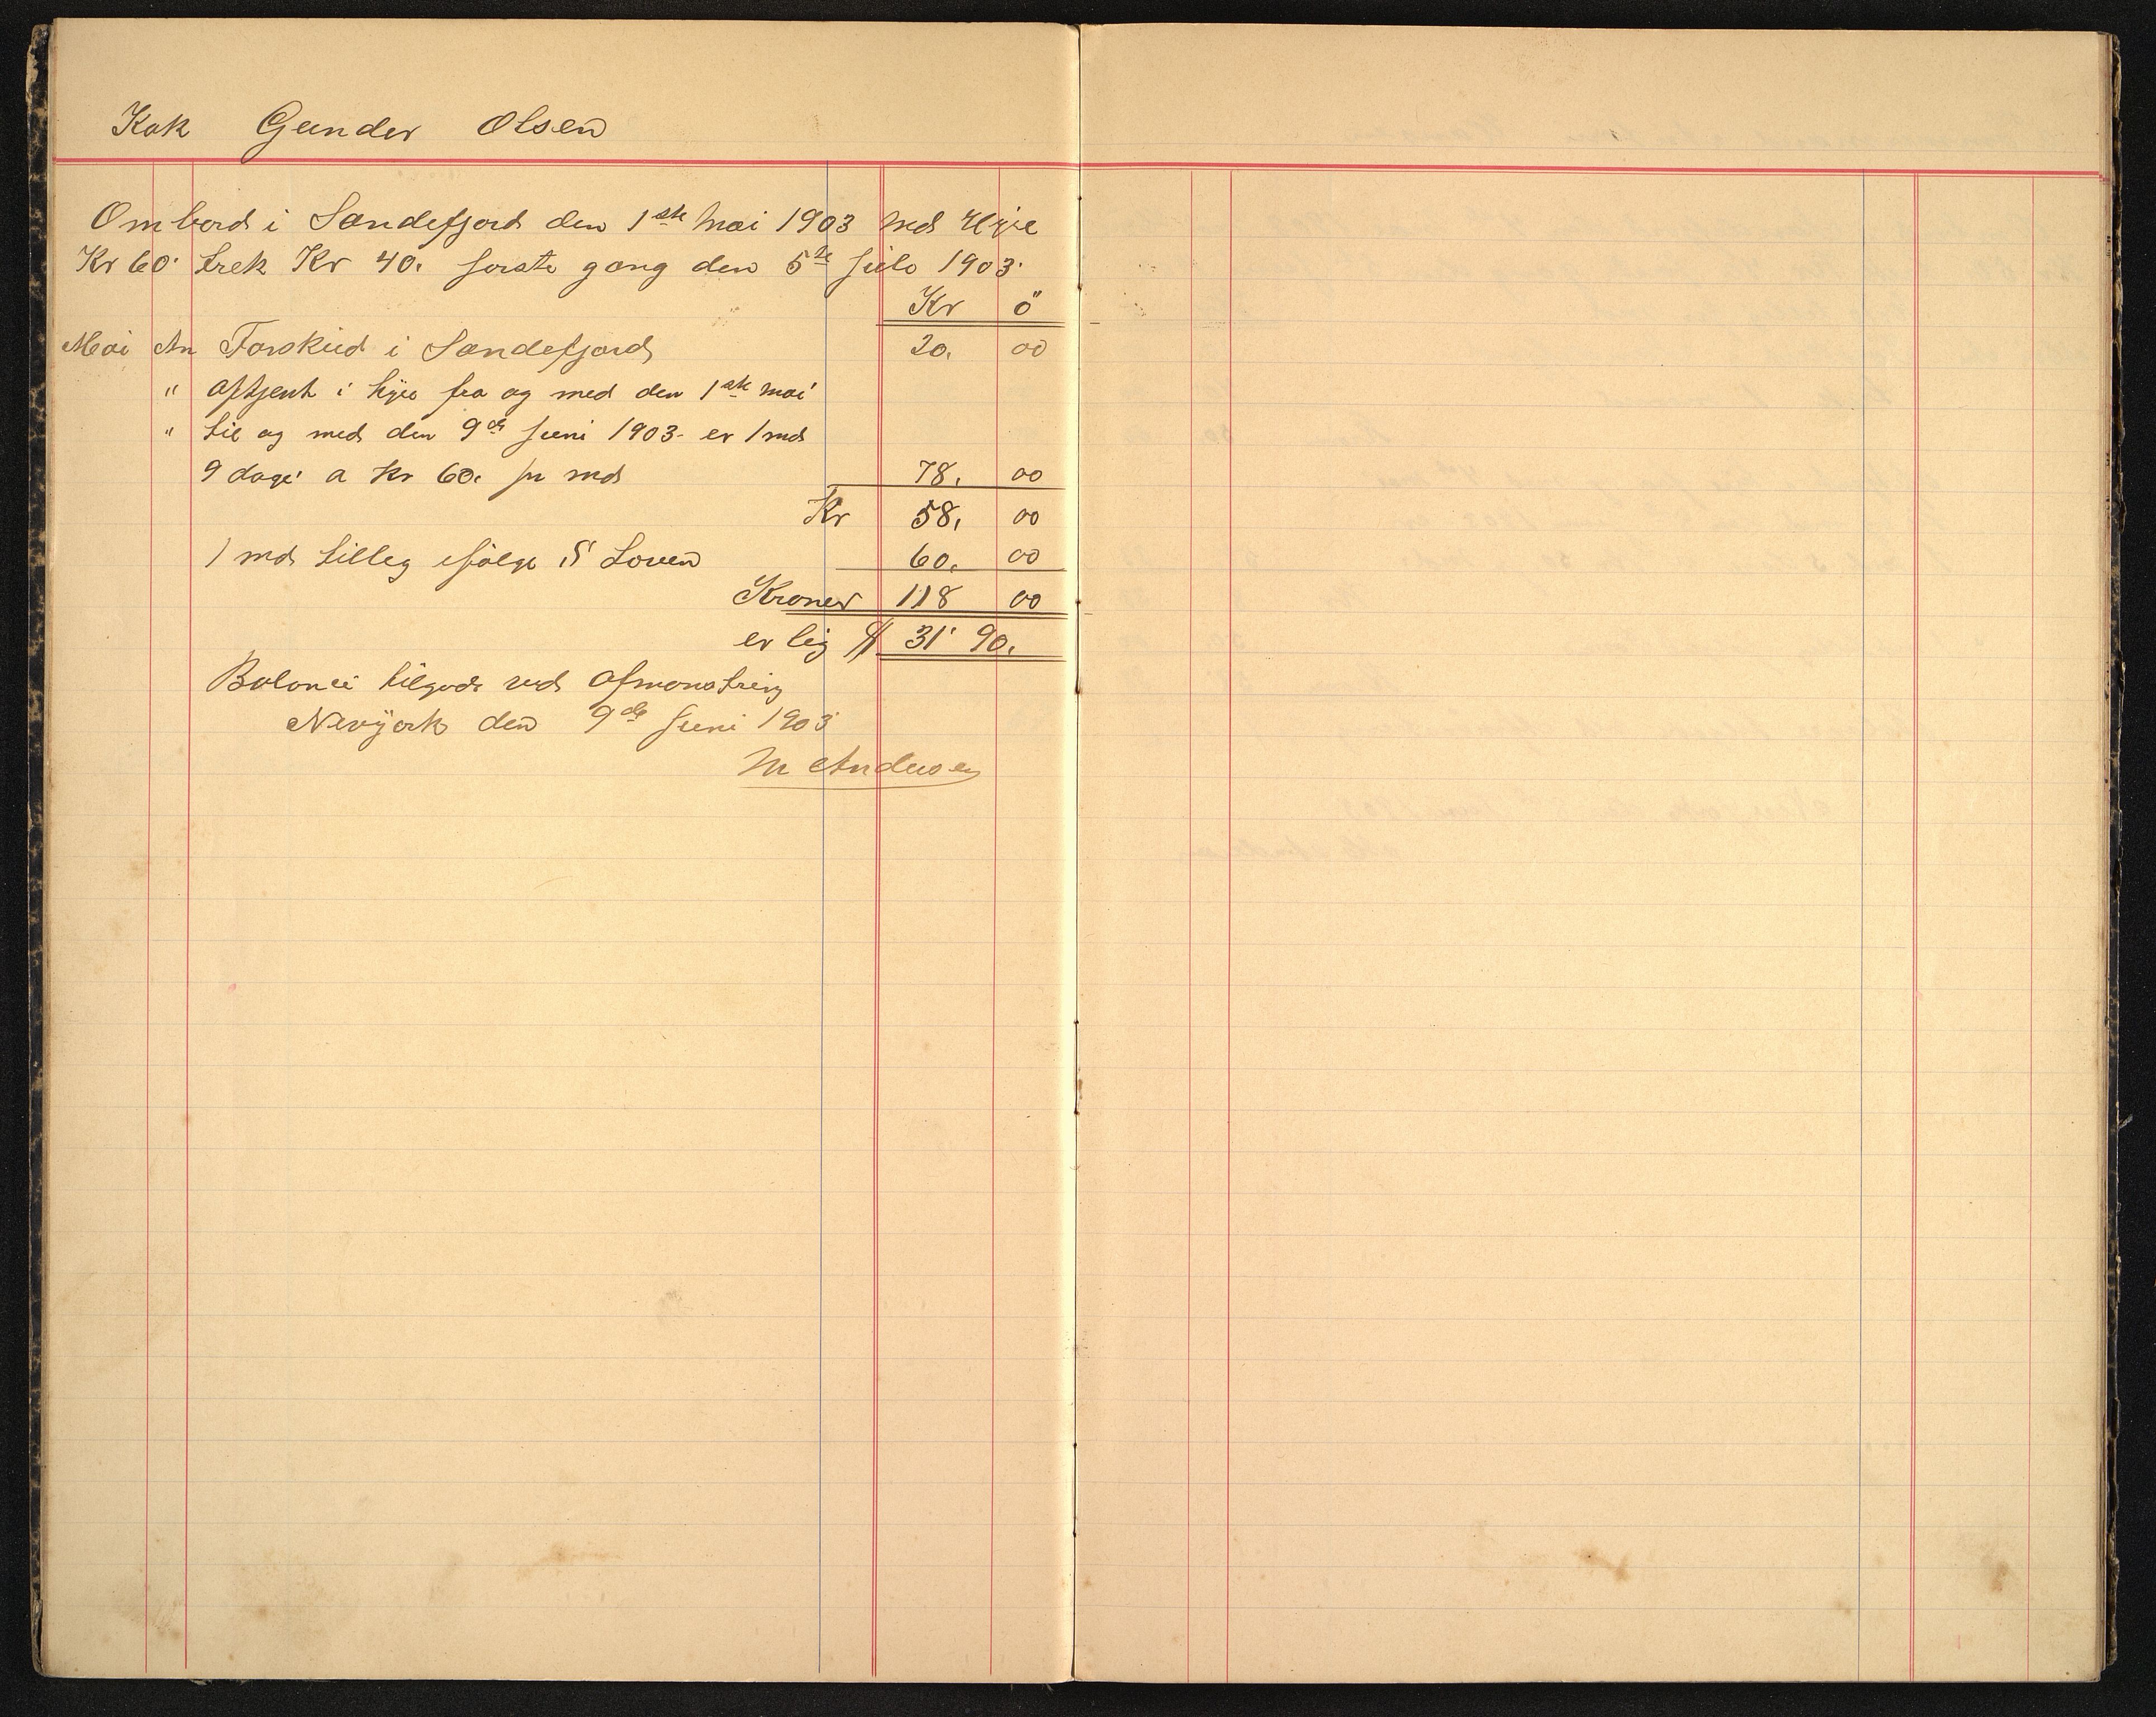 Kok Gunder Olsen
Ombord i Sandefjord den 1ste Mai 1903 med Hyre
Kr 60. trek Kr 40. første gang den 5te Juli 1903.
Kr ö
Mai An Forskud i Sandefjord 20. 00
" Aftjent i hyre fra og med den 1ste mai
" til og med den 9de Juni 1903 - er 1 md
9 dage a Kr 60. pr md 78. 00
Kr 58. 00
1 md tilleg ifölge S Loven 60. 00
Kroner 118 00
er lig $ 31 90.
Balance tilgode ved Afmönstring
Newÿork den 9de Juni 1903
M Andersen